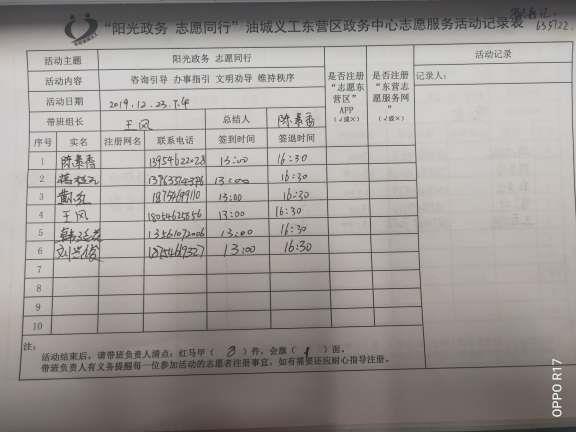 “阳光政务 志愿同行”油城义工东营区政务中心志愿服务活动记录表
活动主题 阳光政务 志愿同行
活动内容 咨询引导 办事指引 文明劝导 维持秩序
活动日期 2019.12.23.
带班组长 王风 总结人 陈景香
是否注册“志愿东营区”APP（√或×）
是否注册“东营志愿服务网”（√或×）
活动记录
记录人：
序号 实名 注册网名 联系电话 签到时间 签退时间
1 陈景香 13954622028 13:00 16:30
2 13:00 16:30
3 13:00 16:30
4 王风 18054625656 13:00 16:30
5 13561072006 13:00 16:30
6 刘兰俊 13:00 16:30
7
8
9
10
注：
活动结束后，请带班负责人清点：红马甲（ 8 ）件，会旗（ 1 ）面。
带班负责人有义务提醒每一位参加活动的志愿者注册事宜，如有需要还应耐心指导注册。
OPPO R17